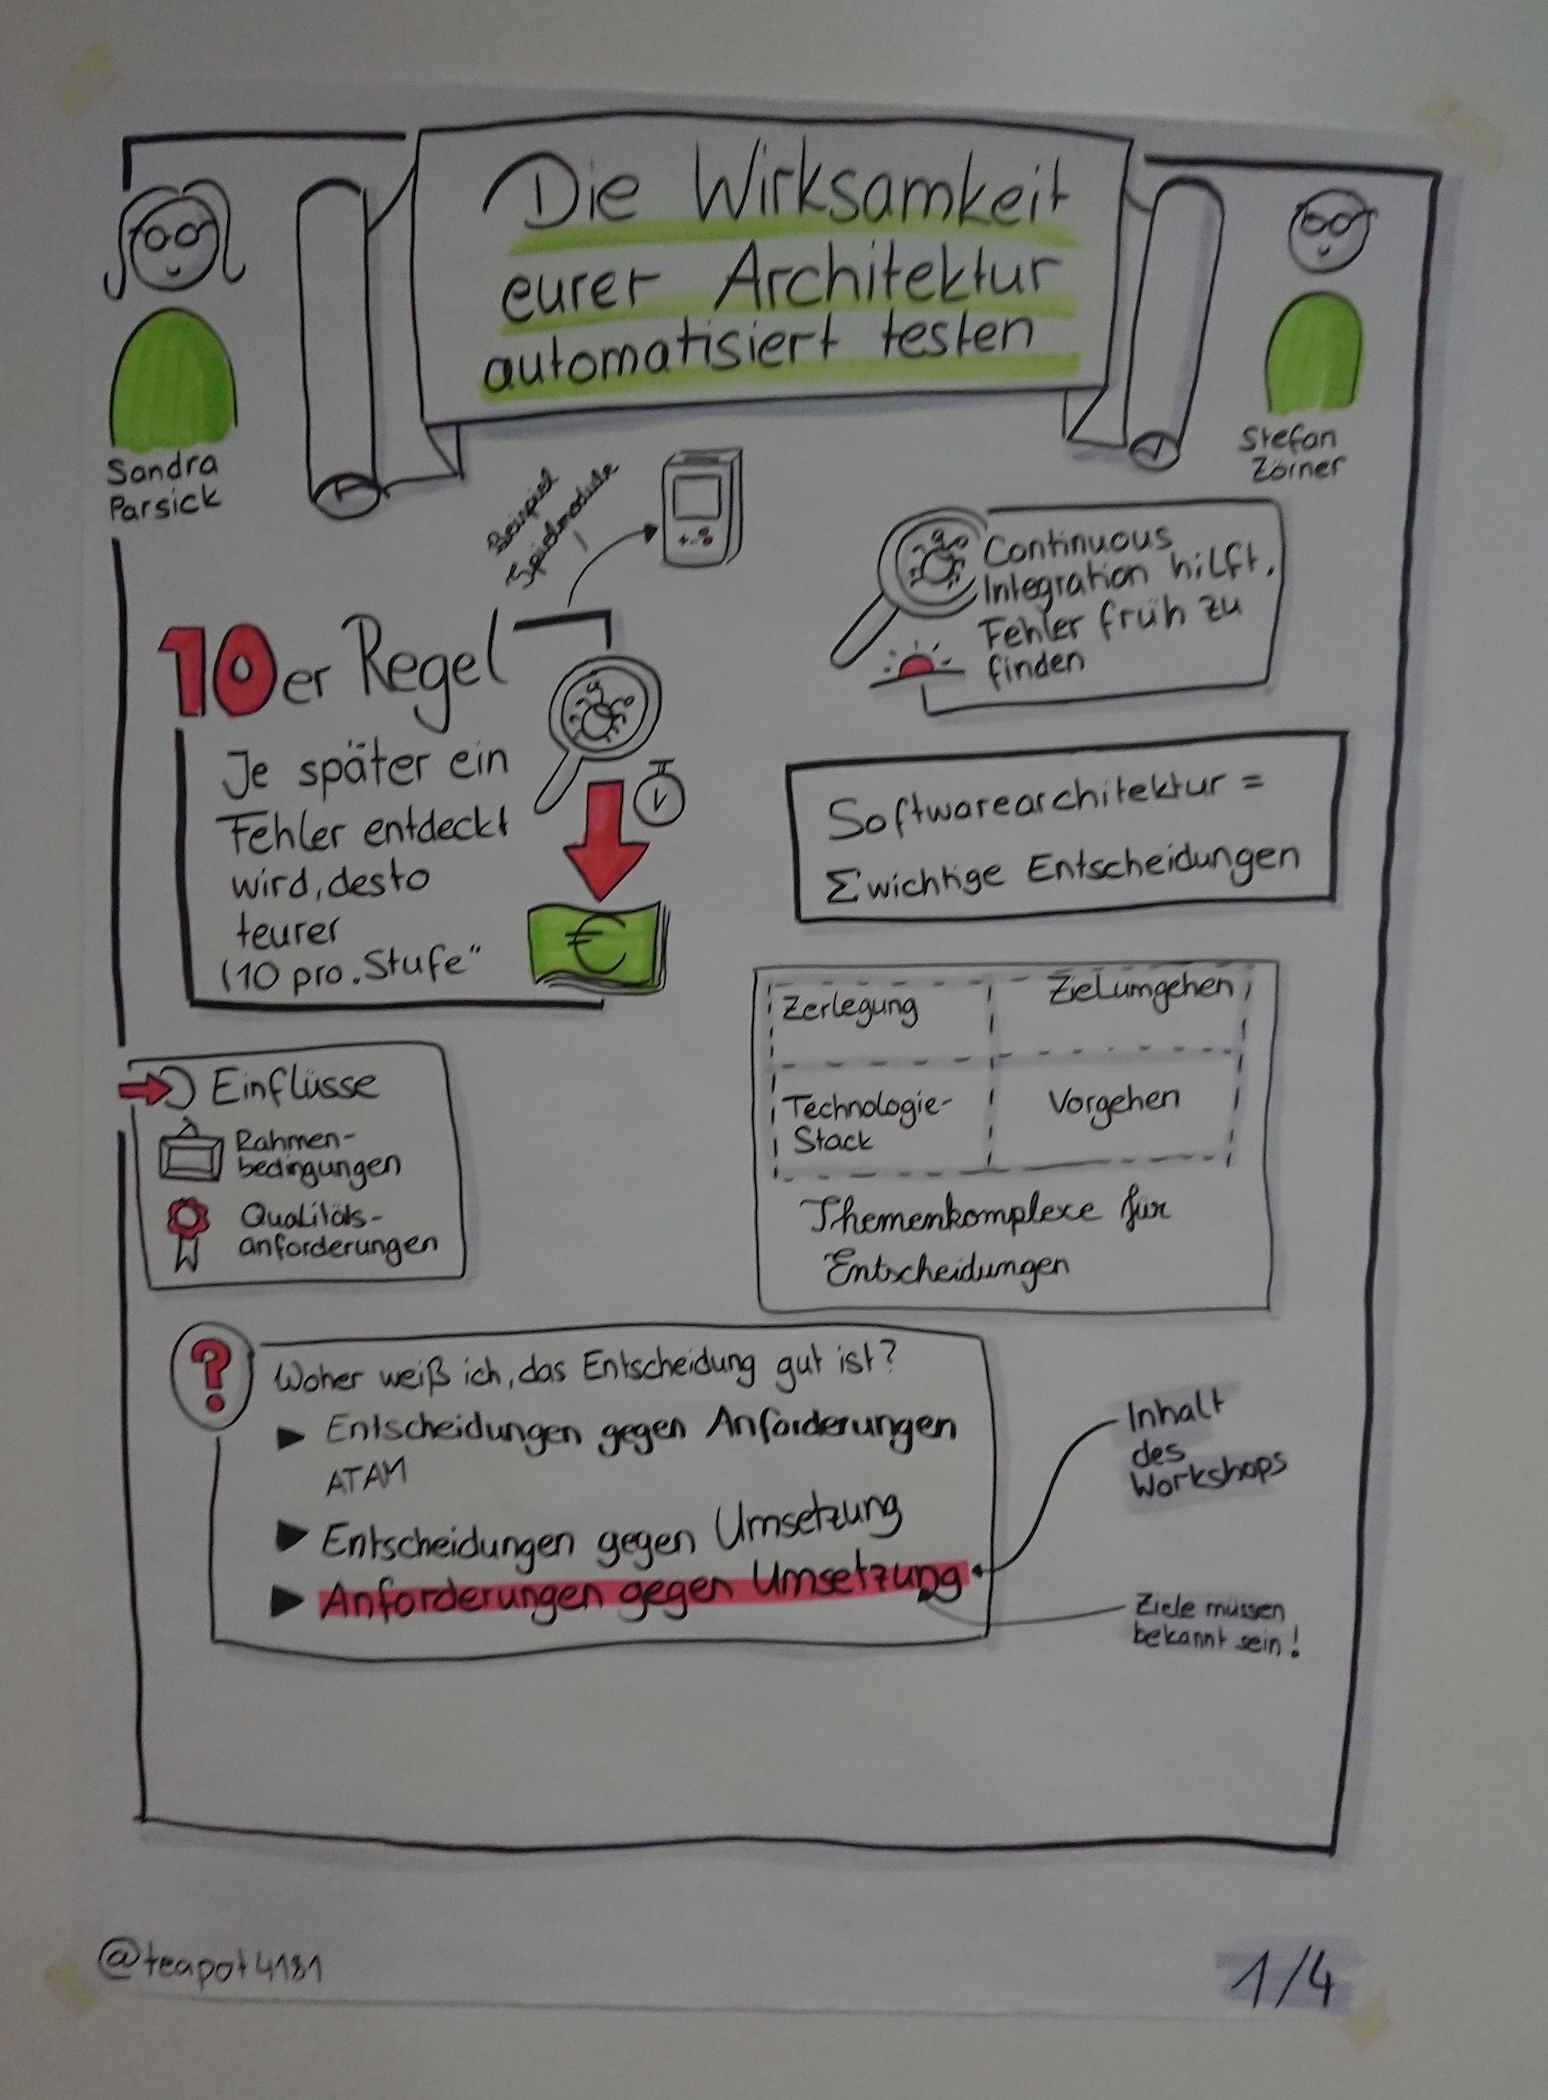 Die Wirksamkeit
eurer Architektur
automatisiert testen
Sandra
Parsick
Stefan
Zörner
Beispiel
Spielmodule
10er Regel
Je später ein
Fehler entdeckt
wird, desto
teurer
(10 pro. Stufe"
Continuous
Integration hilft,
Fehler früh zu
finden
Softwarearchitektur =
Σ wichtige Entscheidungen
Zerlegung
Zielumgehen
Technologie-
Stack
Vorgehen
Themenkomplexe für
Entscheidungen
Einflüsse
Rahmen-
bedingungen
Qualitäts-
anforderungen
?
Woher weiß ich, das Entscheidung gut ist?
Entscheidungen gegen Anforderungen
ATAM
Entscheidungen gegen Umsetzung
Anforderungen gegen Umsetzung
Inhalt
des
Workshops
Ziele müssen
bekannt sein!
@teapot4181
1/4